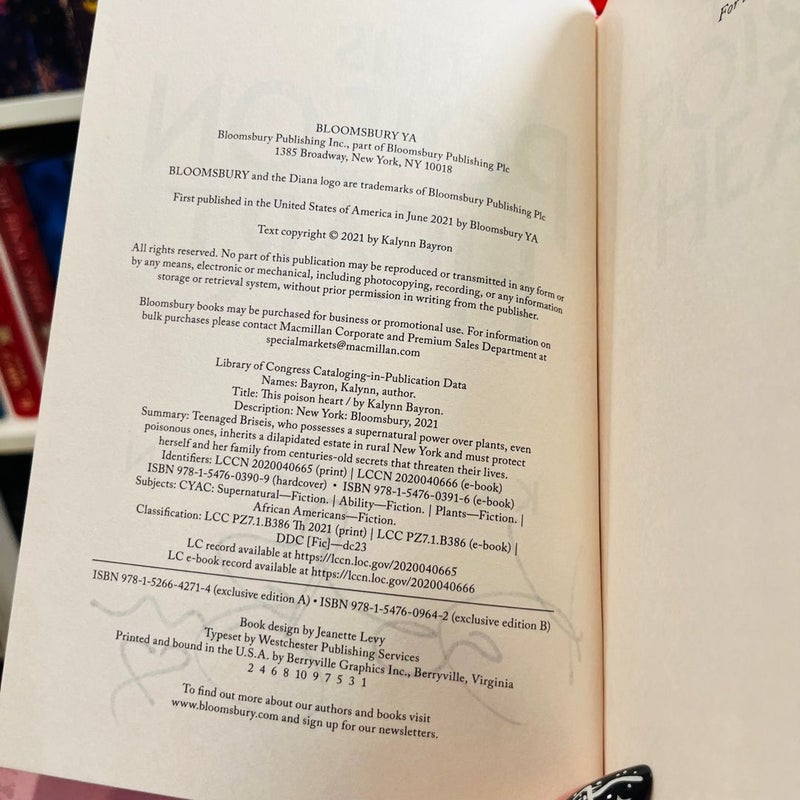 BLOOMSBURY YA
Bloomsbury Publishing Inc., part of Bloomsbury Publishing Plc
1385 Broadway, New York, NY 10018
BLOOMSBURY and the Diana logo are trademarks of Bloomsbury Publishing Plc
First published in the United States of America in June 2021 by Bloomsbury YA
Text copyright © 2021 by Kalynn Bayron
All rights reserved. No part of this publication may be reproduced or transmitted in any form or
by any means, electronic or mechanical, including photocopying, recording, or any information
storage or retrieval system, without prior permission in writing from the publisher.
Bloomsbury books may be purchased for business or promotional use. For information on
bulk purchases please contact Macmillan Corporate and Premium Sales Department at
specialmarkets@macmillan.com
Library of Congress Cataloging-in-Publication Data
Names: Bayron, Kalynn, author.
Title: This poison heart / by Kalynn Bayron.
Description: New York: Bloomsbury, 2021
Summary: Teenaged Briseis, who possesses a supernatural power over plants, even
poisonous ones, inherits a dilapidated estate in rural New York and must protect
herself and her family from centuries-old secrets that threaten their lives.
Identifiers: LCCN 2020040665 (print) | LCCN 2020040666 (e-book)
ISBN 978-1-5476-0390-9 (hardcover) • ISBN 978-1-5476-0391-6 (e-book)
Subjects: CYAC: Supernatural—Fiction. | Ability—Fiction. | Plants—Fiction. |
African Americans—Fiction.
Classification: LCC PZ7.1.B386 Th 2021 (print) | LCC PZ7.1.B386 (e-book) |
DDC [Fic]—dc23
LC record available at https://lccn.loc.gov/2020040665
LC e-book record available at https://lccn.loc.gov/2020040666
ISBN 978-1-5266-4271-4 (exclusive edition A) • ISBN 978-1-5476-0964-2 (exclusive edition B)
Book design by Jeanette Levy
Typeset by Westchester Publishing Services
Printed and bound in the U.S.A. by Berryville Graphics Inc., Berryville, Virginia
2 4 6 8 10 9 7 5 3 1
To find out more about our authors and books visit
www.bloomsbury.com and sign up for our newsletters.
For